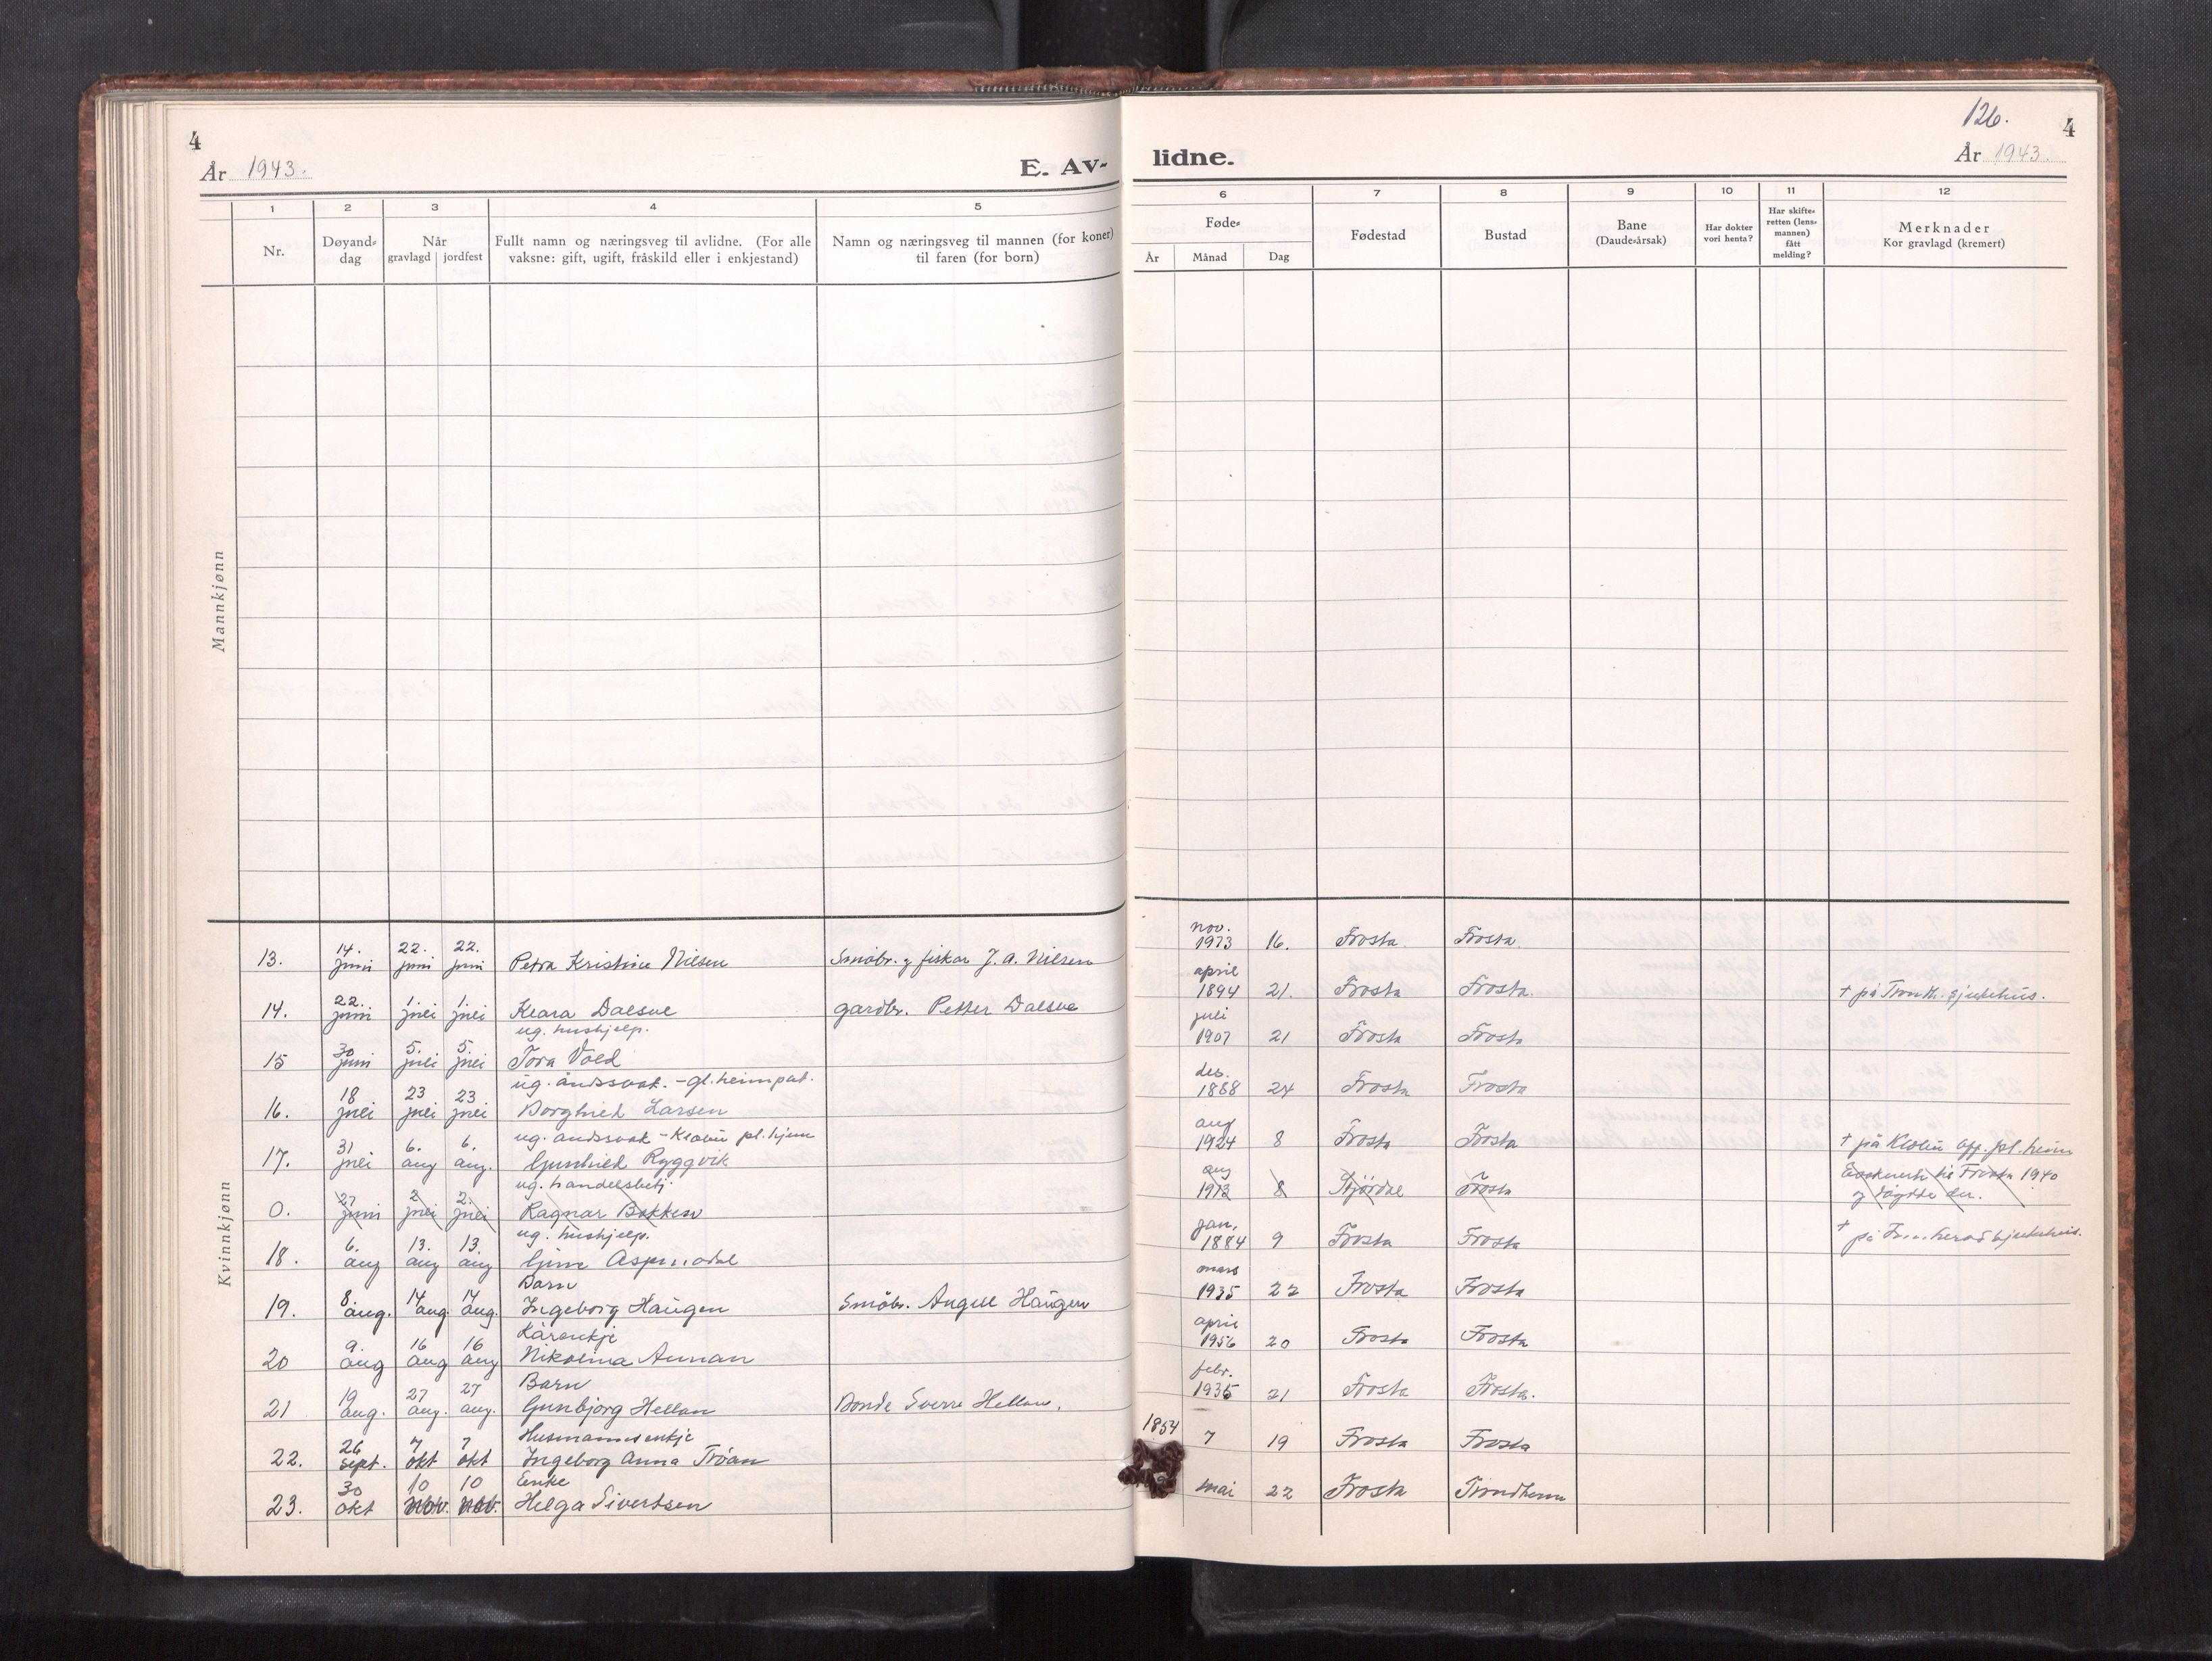 4
År 1943.
E. Av-
1 2 3 4 5
Nr.
Døyand-
dag
Når
gravlagd jordfest
Fullt namn og næringsveg til avlidne. (For alle
vaksne: gift, ugift, fråskild eller i enkjestand)
Namn og næringsveg til mannen (for koner)
til faren (for born)
Mannkjønn
Kvinnkjønn
14. 22. 22.
13. juni juni juni Petra Kristine Nilsen Småbr. og fiskar J. A. Nilsen
22. 1. 1.
14. juni juli juli Klara Dalsve gardbr. Petter Dalsve
ug. hushjelp.
30 5. 5.
15 juni juli juli Tora Vold
ug. åndssvak. - gl.heimpat.
18 23 23
16. juli juli juli Borghild Larsen
ug. andssvak - Klæbu pl.hjem
31 6. 6.
17. juli aug aug. Gunhild Ryggvik
ug. handelsbetj.
27 2 2.
0. juni juli juli Ragnar Bakken
ug. hushjelp.
6. 13. 13.
18. aug aug aug
Barn
8. 14 14
19. aug. aug. aug. Ingeborg Haugen Småbr. Haugen
Kårenkje
9. 16 16
20 aug aug aug Nikolina
Barn
19 27 27
21 aug. aug. aug. Gunbjørg Hellan Bonde Sverre Hellan.
Husmannsenkje
26 7 7
22. sept. okt okt Ingeborg Anna Tröan
Enke
30 10 10
23. okt nov. nov. Helga Sivertsen
126.
4
lidne.
År 1943.
6 7 8 9 10 11 12
Føde-
År Månad Dag
Fødestad
Bustad
Bane
(Daude-årsak)
Har dokter
vori henta?
Har skifte-
retten (lens-
mannen)
fått
melding?
Merknader
Kor gravlagd (kremert)
nov.
1973 16. Frosta Frosta
april
1894 21. Frosta Frosta. † på Trondh. sjukehus.
juli
1907 21 Frosta Frosta
des.
1888 24 Frosta Frosta
aug
1924 8 Frosta Frosta † på Klæbu off. pl. heim
aug
1913 8 Stjørdal Frosta Evakuert til Frosta 1940
og døydde der.
jan.
1884 9 Frosta Frosta † på sjukehus.
mars
1935 22 Frosta Frosta
april
1956 20 Frosta Frosta
febr.
1936 21 Frosta Frosta.
1854 7 19 Frosta Frosta
mai 22 Frosta Trondheim